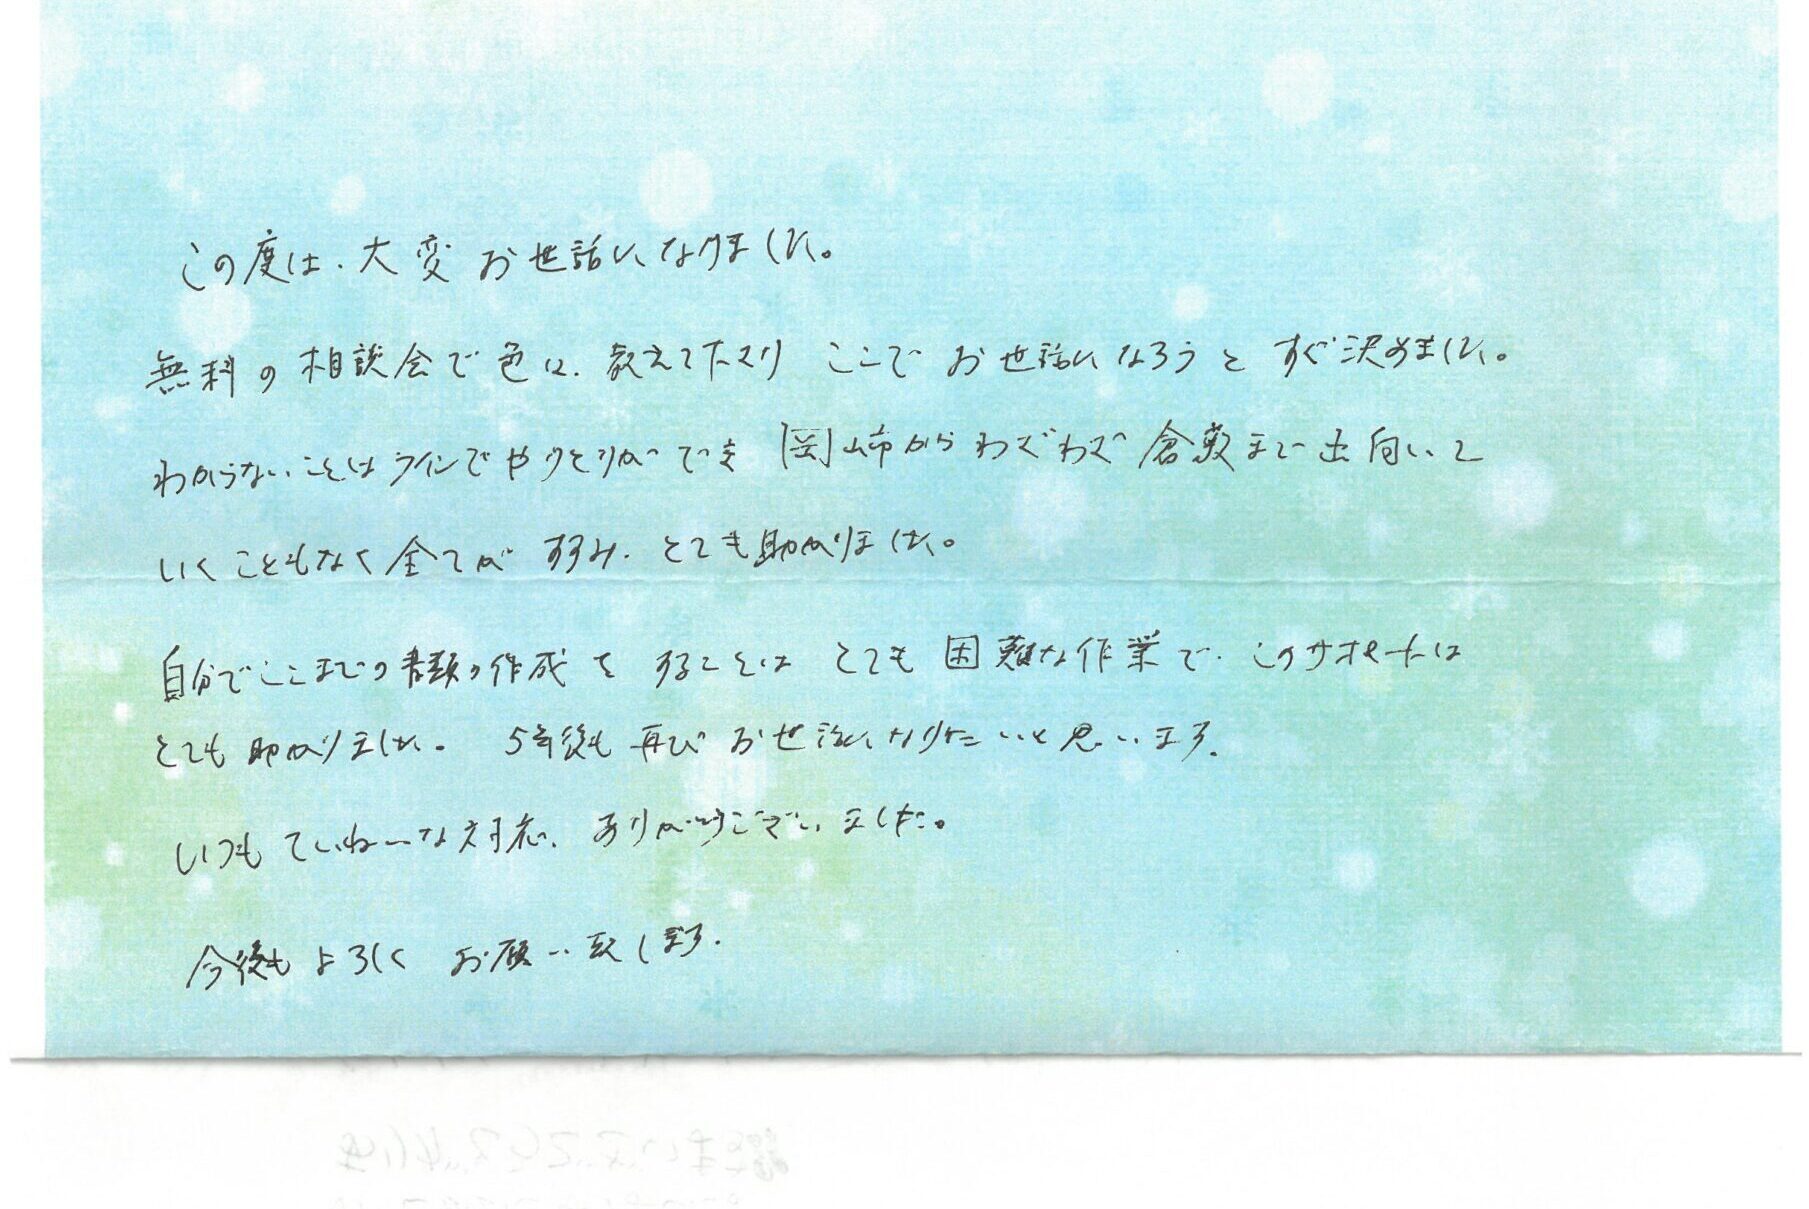 この度は、大変お世話になりました。
無料の相談会で色々教えて下さり ここでお世話になろうとすぐ決めました。
わからないことはラインでやりとりができ 岡山市からわざわざ倉敷まで出向いて
いくこともなく全てがすすみ、とても助かりました。
自分でここまでの書類の作成をすることはとても困難な作業で、このサポートは
とても助かりました。 5年後も再びお世話になりたいと思います。
いつもていねいな対応、ありがとうございました。
今後もよろしくお願い致します。